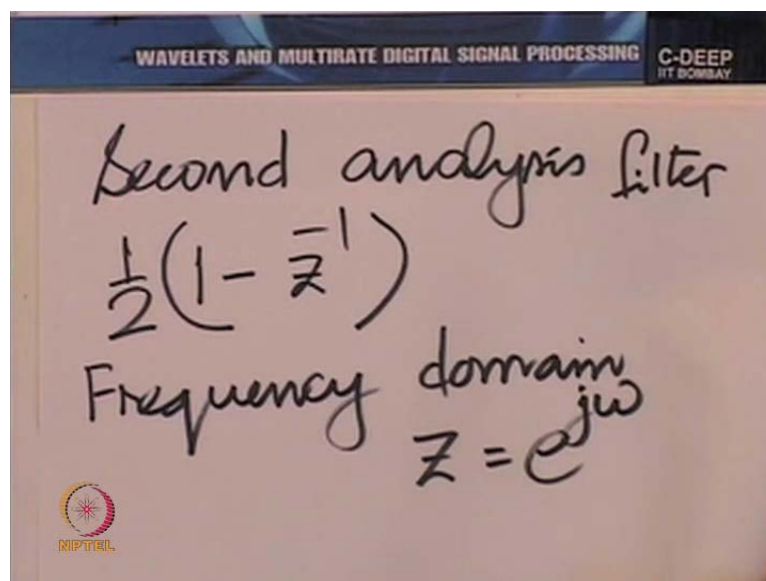 WAVELETS AND MULTIRATE DIGITAL SIGNAL PROCESSING
C-DEEP
IIT BOMBAY
Second analysis filter
½(1 - z⁻¹)
Frequency domain
z = e^{jω}
NPTEL